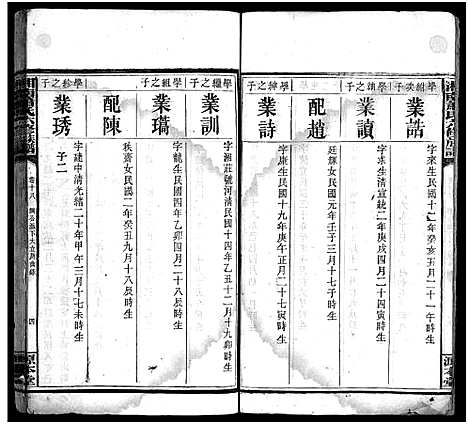 學紱次之子
業詰
字來生民國十二年癸亥五月二十一午時生
學績之子
業讀
字求生清宣統二年庚戌四月二十四寅時生
配趙
廷輝女民國元年壬子三月十七子時生
學紳之子
業詩
字康生民國十九年庚午正月二十七寅時生
學纘之子
業訓
字湘莊號河清民國十四年乙丑十二月十九卯時生
學繩之子
業璊
字龍生民國四年乙卯四月二十八辰時生
配陳
秩齋女民國二年癸丑九月十八辰時生
學紾之子
業琇
字建中清光緒二十年甲午三月十七未時生
子二
卷十八
四
源本堂